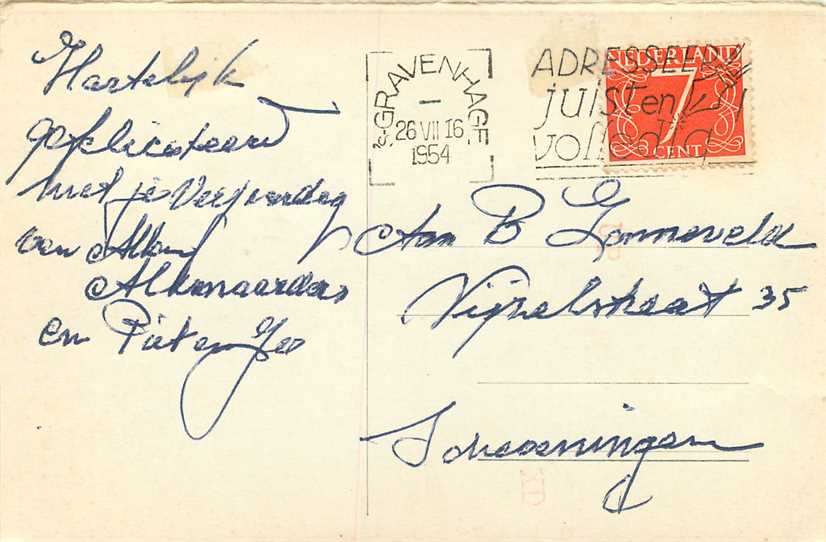 Hartelijk
gefeliciteerd
met je Verjaardag
van Allen
Alkmaarders
en Piet en Jeo
's-GRAVENHAGE
26 VII 16
1954
ADRESSEER
juist en
volledig
NEDERLAND
7
CENT
Aan B Zonneveld
Vijzelstraat 35
Scheveningen